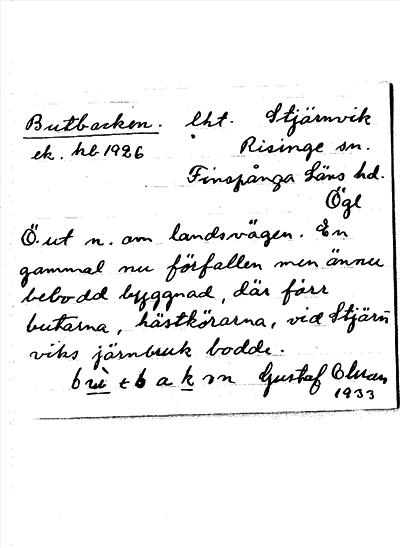 Butbacken. lht. Stjärnvik
ek. hl 1926 Risinge sn.
Finspånga Läns hd.
Ögl
Ö. ut n. om landsvägen. En
gammal nu förfallen men ännu
bebodd byggnad, där förr
butarna, hästkörarna, vid Stjärn
viks järnbruk bodde.
Gustaf
1933